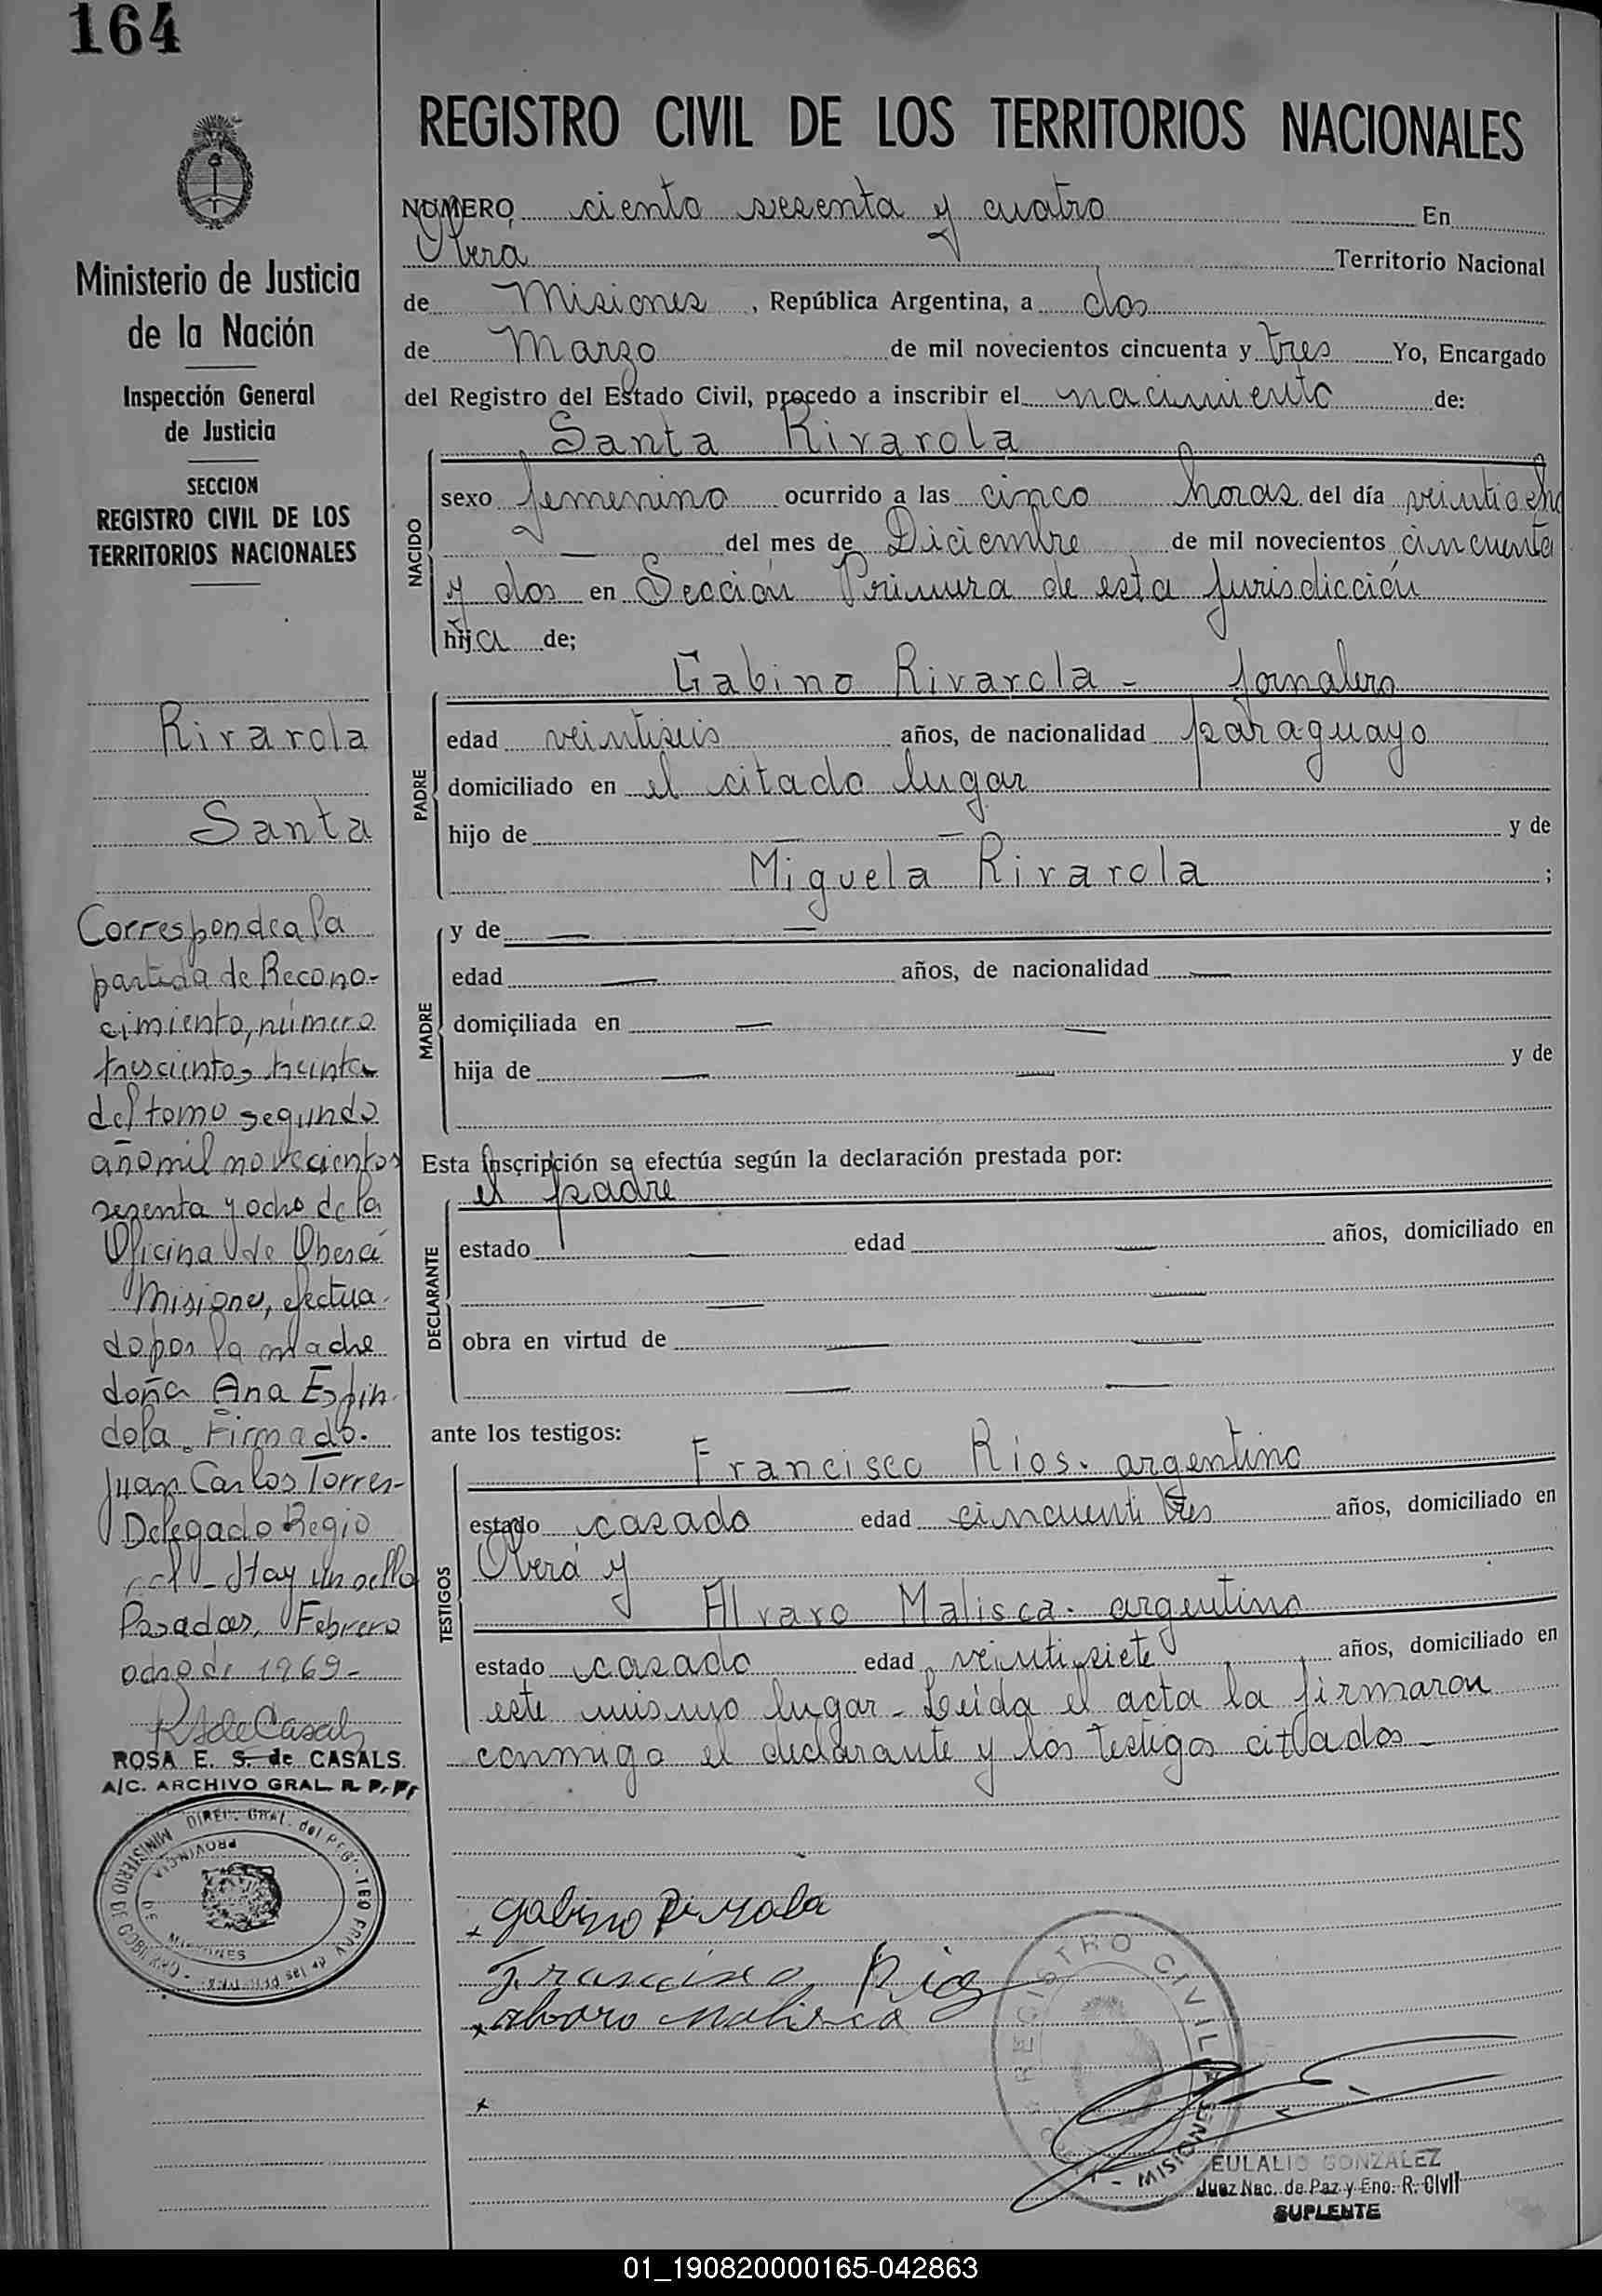 164
REGISTRO CIVIL DE LOS TERRITORIOS NACIONALES
NUMERO ciento sesenta y cuatro En
Oberá Territorio Nacional
de Misiones, República Argentina, a dos
de Marzo de mil novecientos cincuenta y tres Yo, Encargado
del Registro del Estado Civil, procedo a inscribir el nacimiento de:
Santa Rivarola
NACIDO
sexo femenino ocurrido a las cinco horas del día veintiocho
— del mes de Diciembre de mil novecientos cincuenta
y dos en Sección Primera de esta Jurisdicción
hija de;
PADRE
Gabino Rivarola - jornalero
edad veintiseis años, de nacionalidad paraguayo
domiciliado en el citado lugar
hijo de — — y de
Miguela Rivarola ;
MADRE
y de — —
edad — años, de nacionalidad —
domiciliada en — —
hija de — — y de
Esta inscripción se efectúa según la declaración prestada por:
DECLARANTE
el padre
estado — edad — años, domiciliado en
— —
obra en virtud de — —
— —
ante los testigos:
TESTIGOS
Francisco Rios. argentino
estado casado edad cincuentitres años, domiciliado en
Oberá y
Alvaro Malisca. argentino
estado casado edad veintisiete años, domiciliado en
este mismo lugar - Leida el acta la firmaron
conmigo el declarante y los testigos citados -
Gabino Rivarola
Francisco Rios
Alvaro Malisca
REGISTRO CIVIL
- MISIONES
EULALIO GONZALEZ
Juez Nac. de Paz y Enc. R. Civil
SUPLENTE
Ministerio de Justicia
de la Nación
Inspección General
de Justicia
SECCION
REGISTRO CIVIL DE LOS
TERRITORIOS NACIONALES
Rivarola
Santa
Corresponde a la
partida de Recono-
cimiento, número
trescientos treinta
del tomo segundo
año mil novecientos
sesenta y ocho de la
Oficina de Oberá
Misiones, efectua
do por la madre
doña Ana Espin
dola. Firmado.
Juan Carlos Torres-
Delegado Regio
nal - Hay un sello
Posadas, Febrero
ocho de 1969-
R S de Casals
ROSA E. S. de CASALS
A/C. ARCHIVO GRAL. R. P. P.
DIREC. GRAL. del
PROVINCIA
DE
MISIONES
MINISTERIO DE
de las
01_190820000165-042863